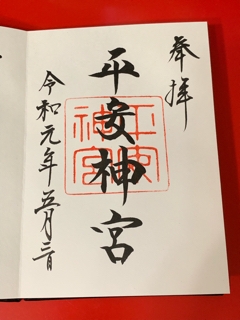 奉拝
平安神宮
平安神宮
令和元年五月三日